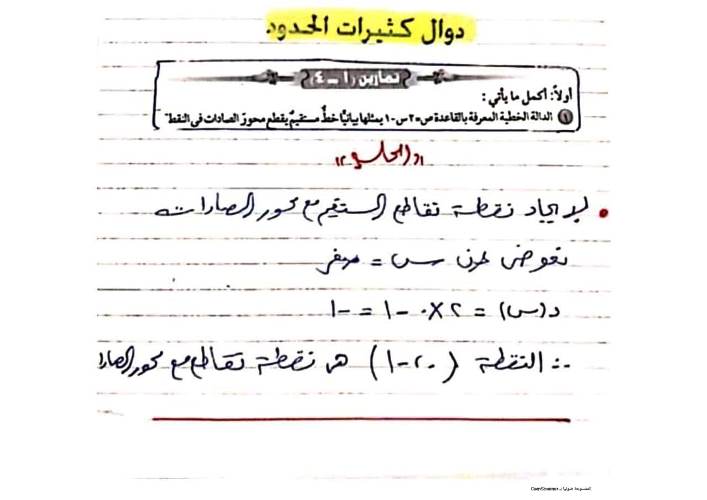 دوال كثيرات الحدود
تمارين (١ - ٤)
أولاً: أكمل ما يأتي :
١ الدالة الخطية المعرفة بالقاعدة ص = ٢ س - ١ يمثلها بيانيًا خطٌ مستقيمٌ يقطع محورَ الصادات في النقطة
"الحل"
• لإيجاد نقطة تقاطع المستقيم مع محور الصادات
نعوض عن س = صفر
د(س) = ٢ × ٠ - ١ = -١
∴ النقطة (٠، -١) هي نقطة تقاطع مع محور الصادا
الممسوحة ضوئيا بـ CamScanner